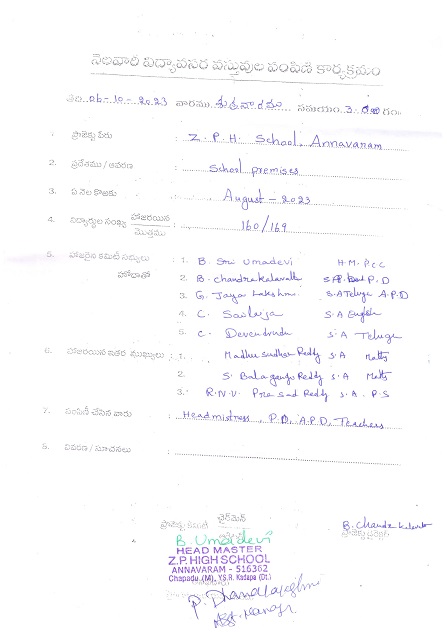 నెలవారీ విద్యావసర వస్తువుల పంపిణీ కార్యక్రమం
తేది 06-10-2023 వారము శుక్రవారము సమయం 3-00 గం.
1. ప్రాజెక్టు పేరు : Z.P.H. School, Annavaram
2. ప్రదేశము / ఆవరణ : School premises
3. ఏ నెల కొఱకు : August - 2023
4. విద్యార్థుల సంఖ్య హాజరయిన / మొత్తము : 160/169
5. హాజరైన కమిటీ సభ్యులు : 1. B. Sri Umadevi H.M. PCC
హోదాతో 2. B. Chandrakalavathi P.D
3. G. Jaya Lakshmi S.A Telugu A.P.D
4. C. Sailaja S.A English
5. C. Devendrudu S.A Telugu
6. హాజరయిన ఇతర ముఖ్యులు : 1. Madhu sudhan Reddy S.A Maths
2. S. Balagangi Reddy S.A Maths
3. R.N.V. Prasad Reddy S.A. P.S
7. పంపిణీ చేసిన వారు : Headmistress, P.D, A.P.D, Teachers
8. వివరణ / సూచనలు :
ఛైర్మెన్
ప్రాజెక్టు కమిటీ
B. Chandrakalavathi
ప్రాజెక్టు డైరెక్టర్
B. Umadevi
HEAD MASTER
Z.P. HIGH SCHOOL
ANNAVARAM - 516362
Chapadu (M), Y.S.R. Kadapa (Dt.)
P. Dhanalakshmi